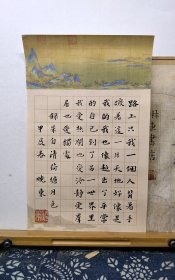 路上只我一個人背着手
踱着這一片天地好像是
我的我也像超出了平常
的自己到了另一世界里
我愛熱鬧也愛冷静愛群
居也愛獨處
朱自清荷塘月色
甲辰春 曉東